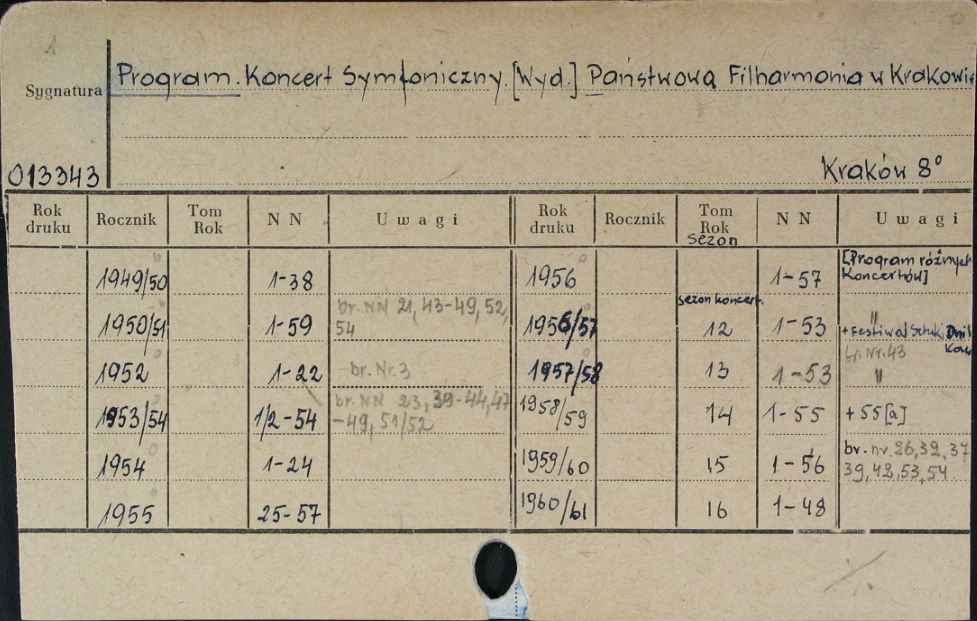 Program. Koncert Symfoniczny. [Wyd.] Państwowa Filharmonia w Krakowie
Sygnatura
013343
Kraków 8°
Rok druku Rocznik Tom Rok N N Uwagi Rok druku Rocznik Tom Rok Sezon N N Uwagi
1949/50 1-38 1956 1-57 [Program różnych Koncertów]
1950/51 1-59 br. NN 21, 43-49, 52, 54 1956/57 sezon koncert. 12 1-53 " + Festiwal Sztuki Dni
1952 1-22 br. Nr. 3 1957/58 13 1-53 br. Nr. 43 "
1953/54 1/2-54 br. NN 23, 39-44, 47-49, 51/52 1958/59 14 1-55 + 55[a]
1954 1-24 1959/60 15 1-56 br. nr. 26, 32, 37 39, 42, 53, 54.
1955 25-57 1960/61 16 1-48